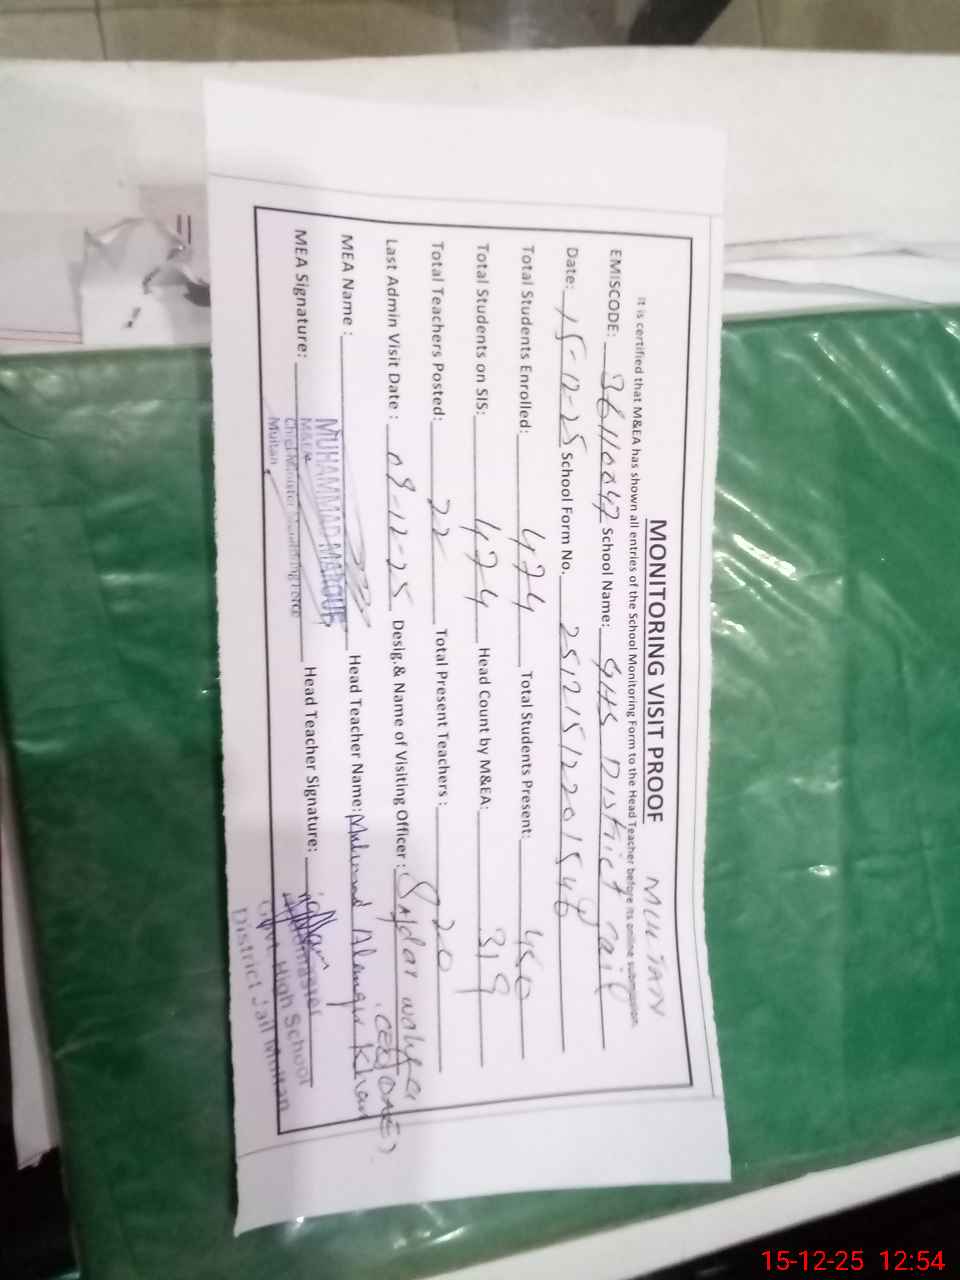 MONITORING VISIT PROOF MULTAN
It is certified that M&EA has shown all entries of the School Monitoring Form to the Head Teacher before its online submission.
EMISCODE: 36110047 School Name: GHS District Jail
Date: 15-12-25 School Form No. 25121512201548
Total Students Enrolled: 474 Total Students Present: 450
Total Students on SIS: 474 Head Count by M&EA: 319
Total Teachers Posted: 22 Total Present Teachers: 20
Last Admin Visit Date: 09-12-25 Desig.& Name of Visiting Officer:
MEA Name: MUHAMMAD Head Teacher Name: Khan
MEA Signature: Head Teacher Signature:
Multan
Headmaster
Govt. High School
District Jail Multan
15-12-25 12:54